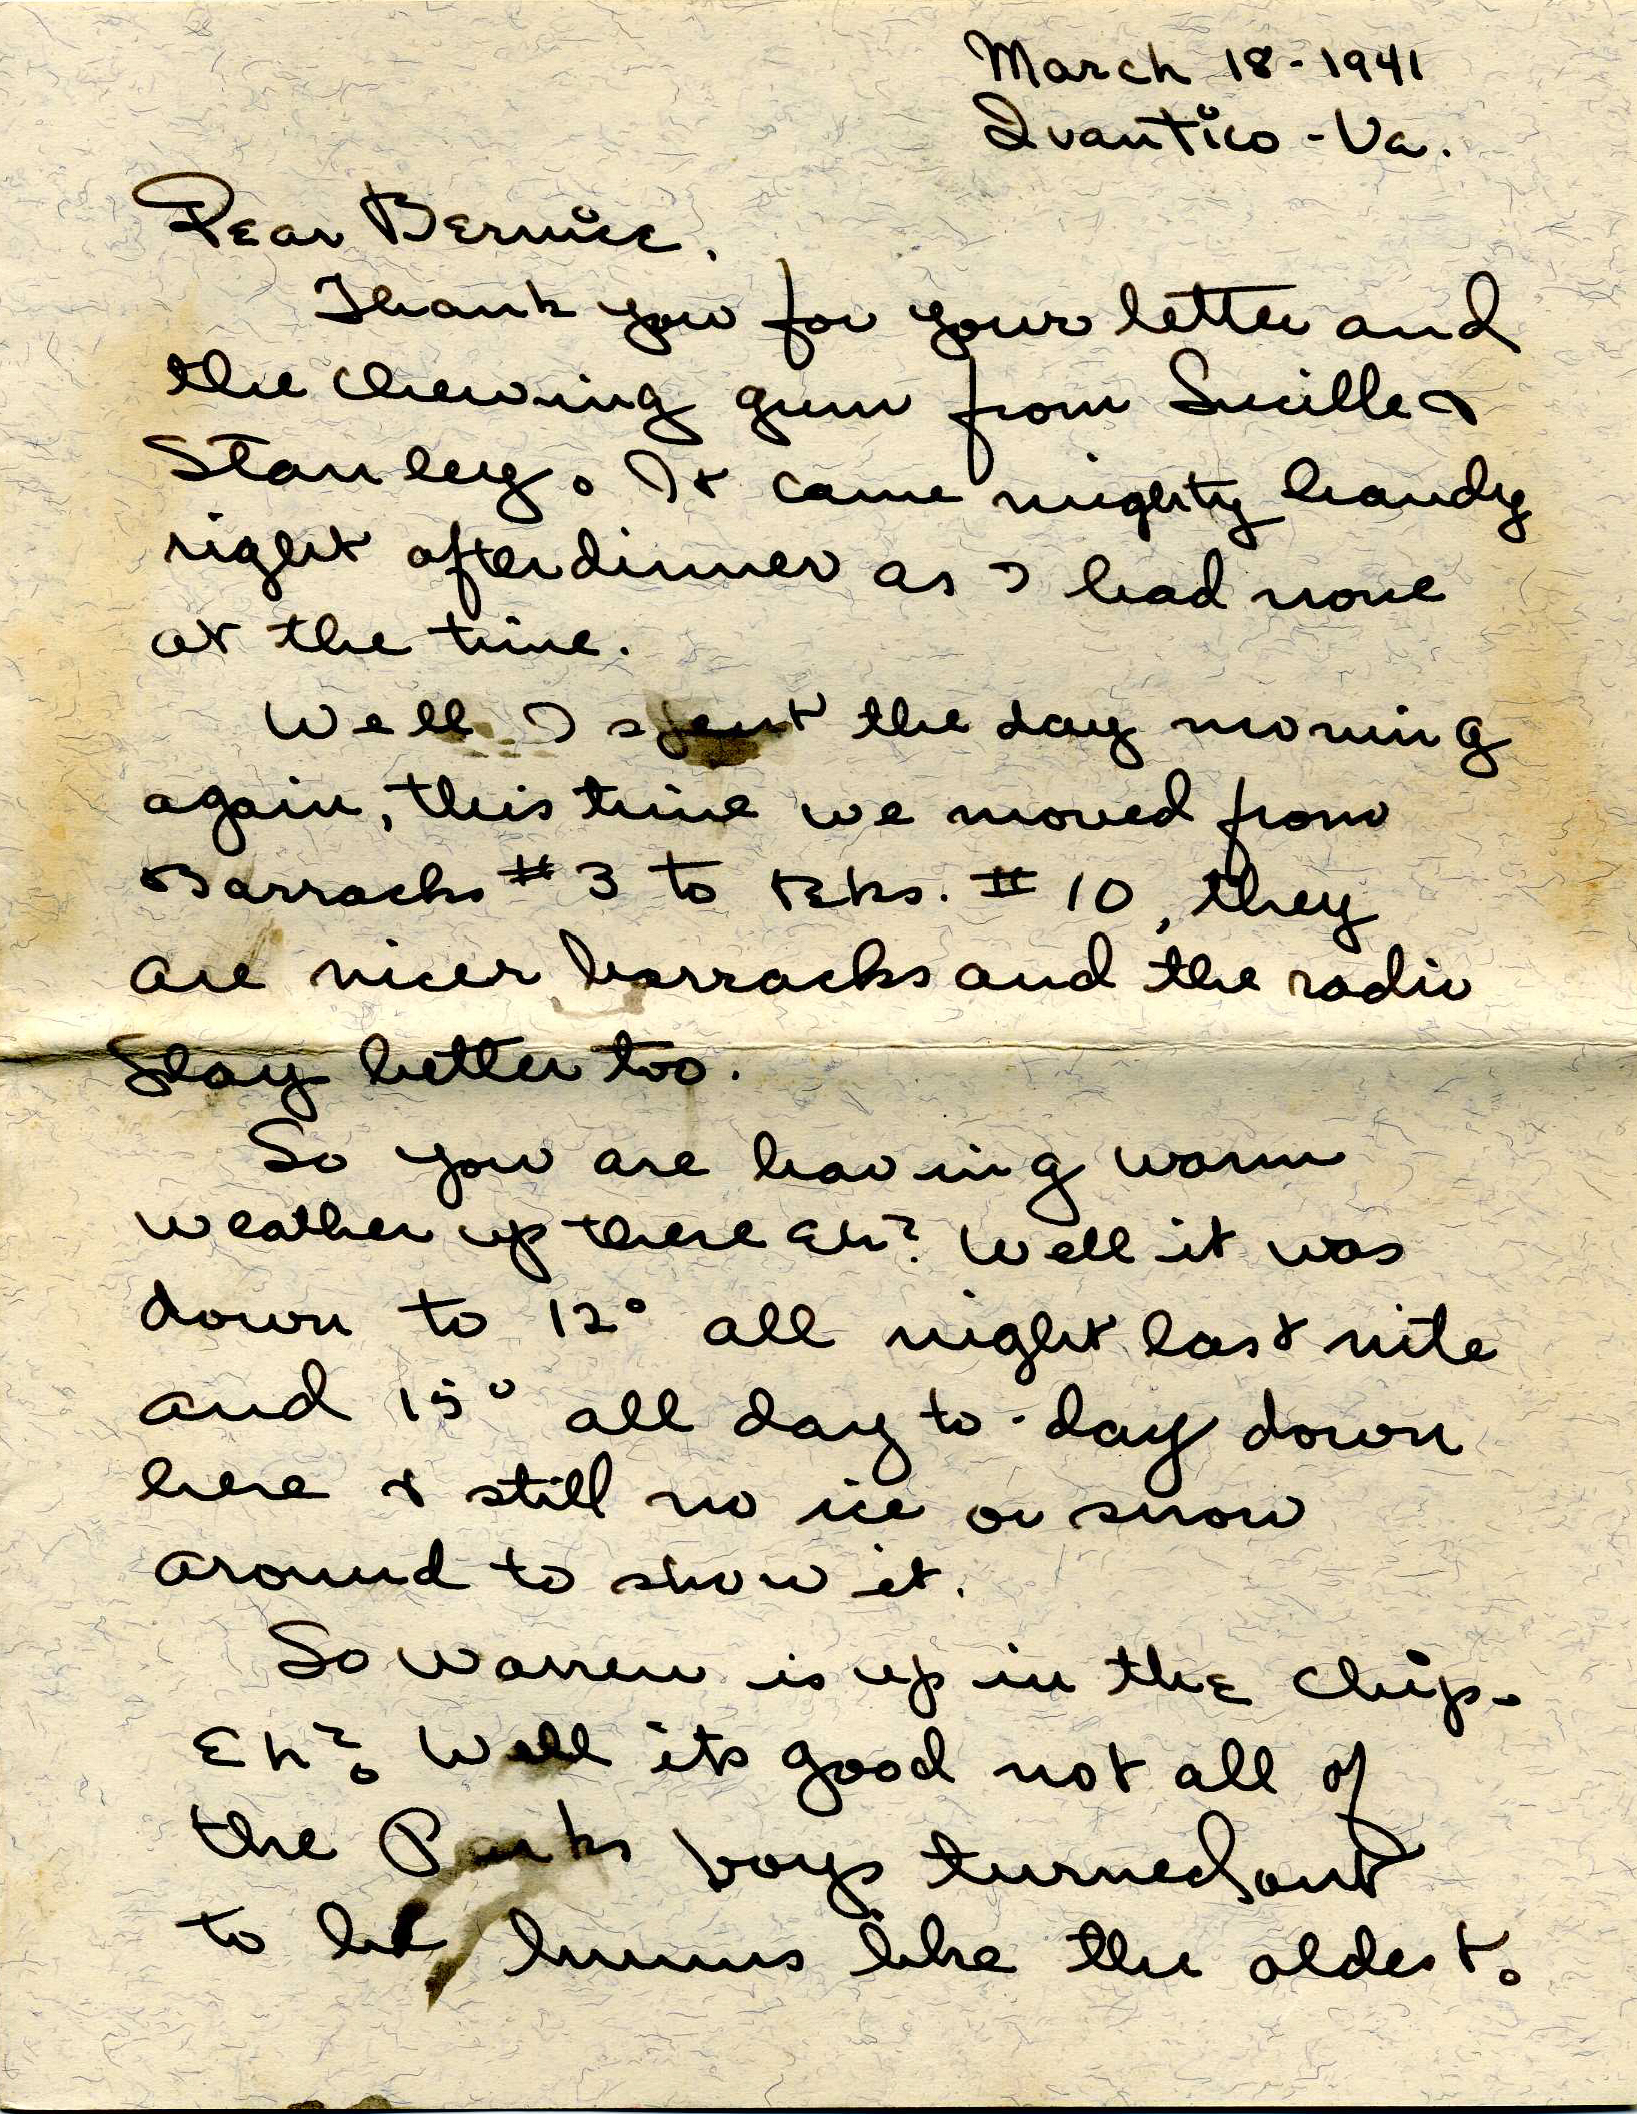 March 18-1941
Quantico - Va.
Dear Bernice,
Thank you for your letter and
the chewing gum from Lucille &
Stanley. It came mighty handy
right after dinner as I had none
at the time.
Well I spent the day moving
again, this time we moved from
Barracks #3 to Bks. #10, they
are nicer barracks and the radio
Play better too.
So you are having warm
weather up there Eh? Well it was
down to 12° all night last nite
and 15° all day to-day down
here & still no ice or snow
around to show it.
So Warren is up in the chip.
Eh? Well its good not all of
the Parks boys turned out
to be bums like the oldest.